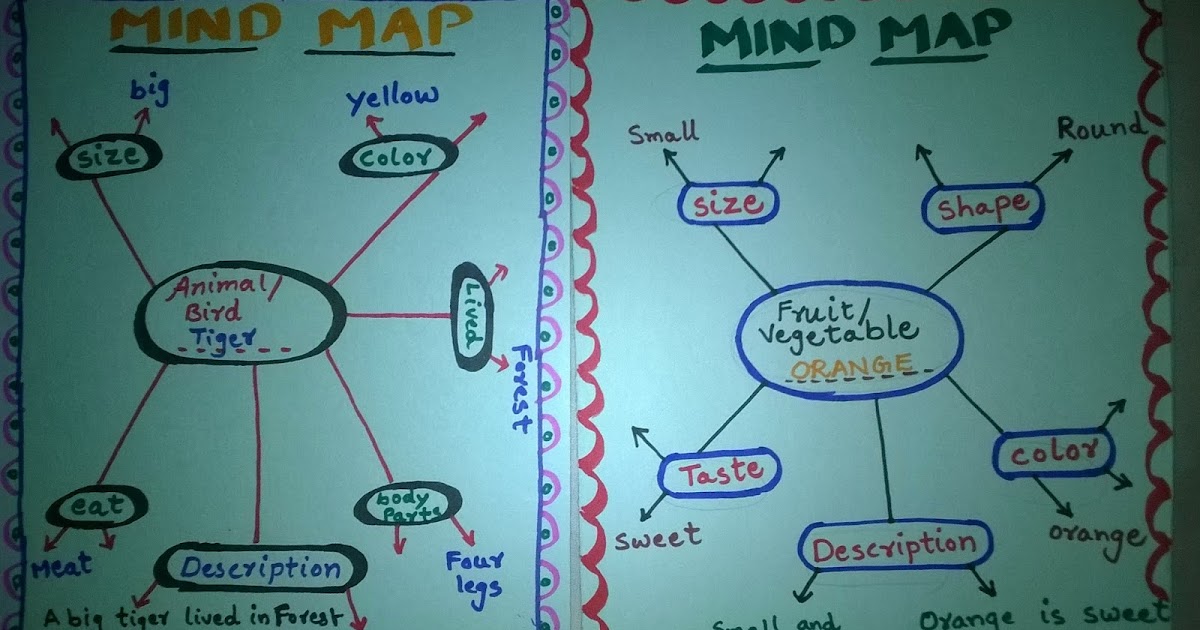 MIND MAP
big
yellow
size
color
Animal/
Bird
Tiger
Lived
Forest
eat
body
Parts
Meat
Description
Four
legs
A big tiger lived in Forest
MIND MAP
Small
Round
size
shape
Fruit/
Vegetable
ORANGE
Taste
color
sweet
Description
orange
Small and
Orange is sweet